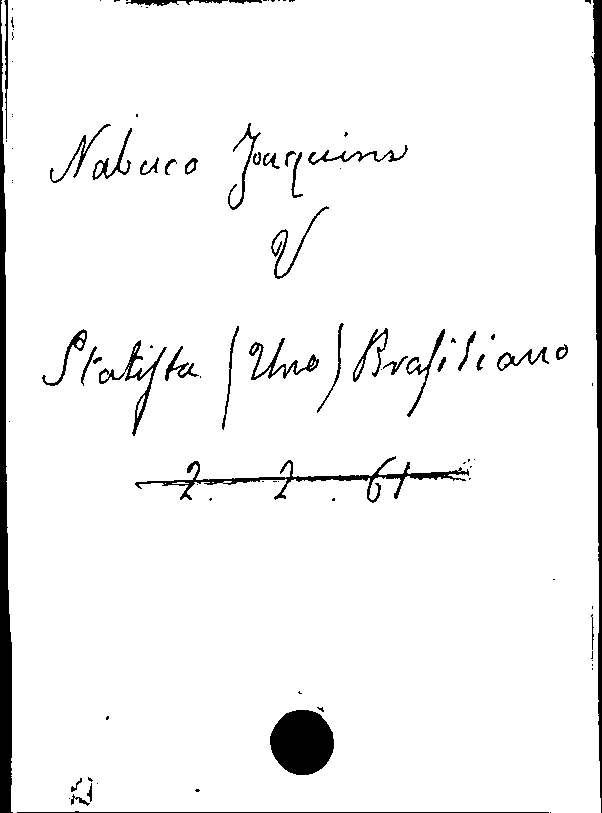 Nabuco Joaquim
V
Statista (Uno) Brasiliano
2. 2. 61